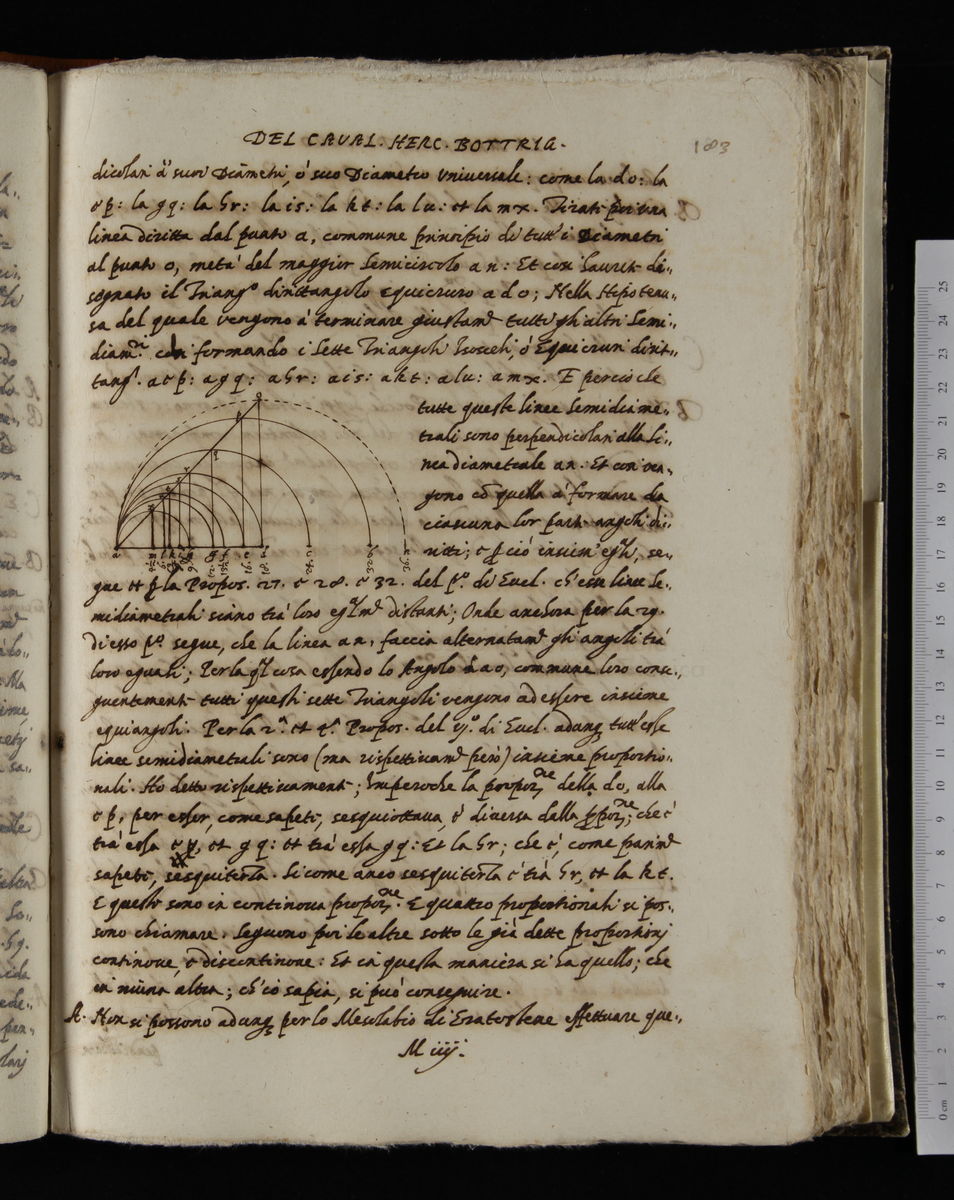 DEL CAVAL. HERC. BOTTRIG.
183
dicolari à suoi Diāmetri, ò suo Diametro Vniuersale: come la do: la
e p: la g q: la hr: la is: la kt: la lu: et la mx. Tirati poi una
linea diritta dal punto a, commune principio di tutt'i Diametri
al punto o, metà del maggior Semicircolo an: Et così haurete di„
segnato il Triang.º dirittangolo equicruro ado; Nella Hipotenu„
sa del quale vengono à terminare giustam.te tutti gli altri Semi„
diam.ri così formando i Sette Triangoli Isosceli, ò Equicruri diritt„
tang.li aep: agq: ahr: ais: akt: alu: amx. E perciò che
tutte queste linee Semidiame„
trali sono perpendicolari alla li„
nea diametrale an: Et con ue„
gono cō quella à formare da
ciascuna lor parte angoli di„
ritti; e p̱ ciò insiem' eg.li, se„
gue et p̱ la Propos. 27. e 28. e 32. del p.º di Eucl. ch'esse linee Se„
midiametrali siano trà loro eg.lm.te distanti; Onde anchora per la 29.
di esso p.º segue, che la linea an, faccia alternatam.te gli angoli trà
loro eguali; Per la q̄l cosa essendo lo Angolo dao, commune loro conse„
guentemente tutti questi sette Triangoli vengono ad essere insieme
equiangoli. Per la 2.ª et 4.ª Propos. del vj.º di Eucl. adunq; tutt'esse
linee semidiametrali sono (ma rispettiuam.te però) insieme proportio„
nali. Hò detto rispettiuamente; Imperoche la propor.ne della do, alla
e p, per esser, come sapete, sesquiottaua, è diuersa dalla p̱por.ne; che è
trà essa e p, et g q: et trà essa g q: Et la hr; che è, come parim.te
sapete, sesquiterza. Si come anco sesquiterza è trà hr, et la kt.
E queste sono in continoua propor.ne. E quattro proportionali si pos„
sono chiamare. Seguono poi le altre sotto le già dette proportioni
continoue, e discontinoue: Et cō questa maniera si hà quello; che
in niuna altra; ch'io sapia, si può conseguire.
A. Non si possono adunq; per lo Mesolabio di Eratostene effettuare que„
M iiij.